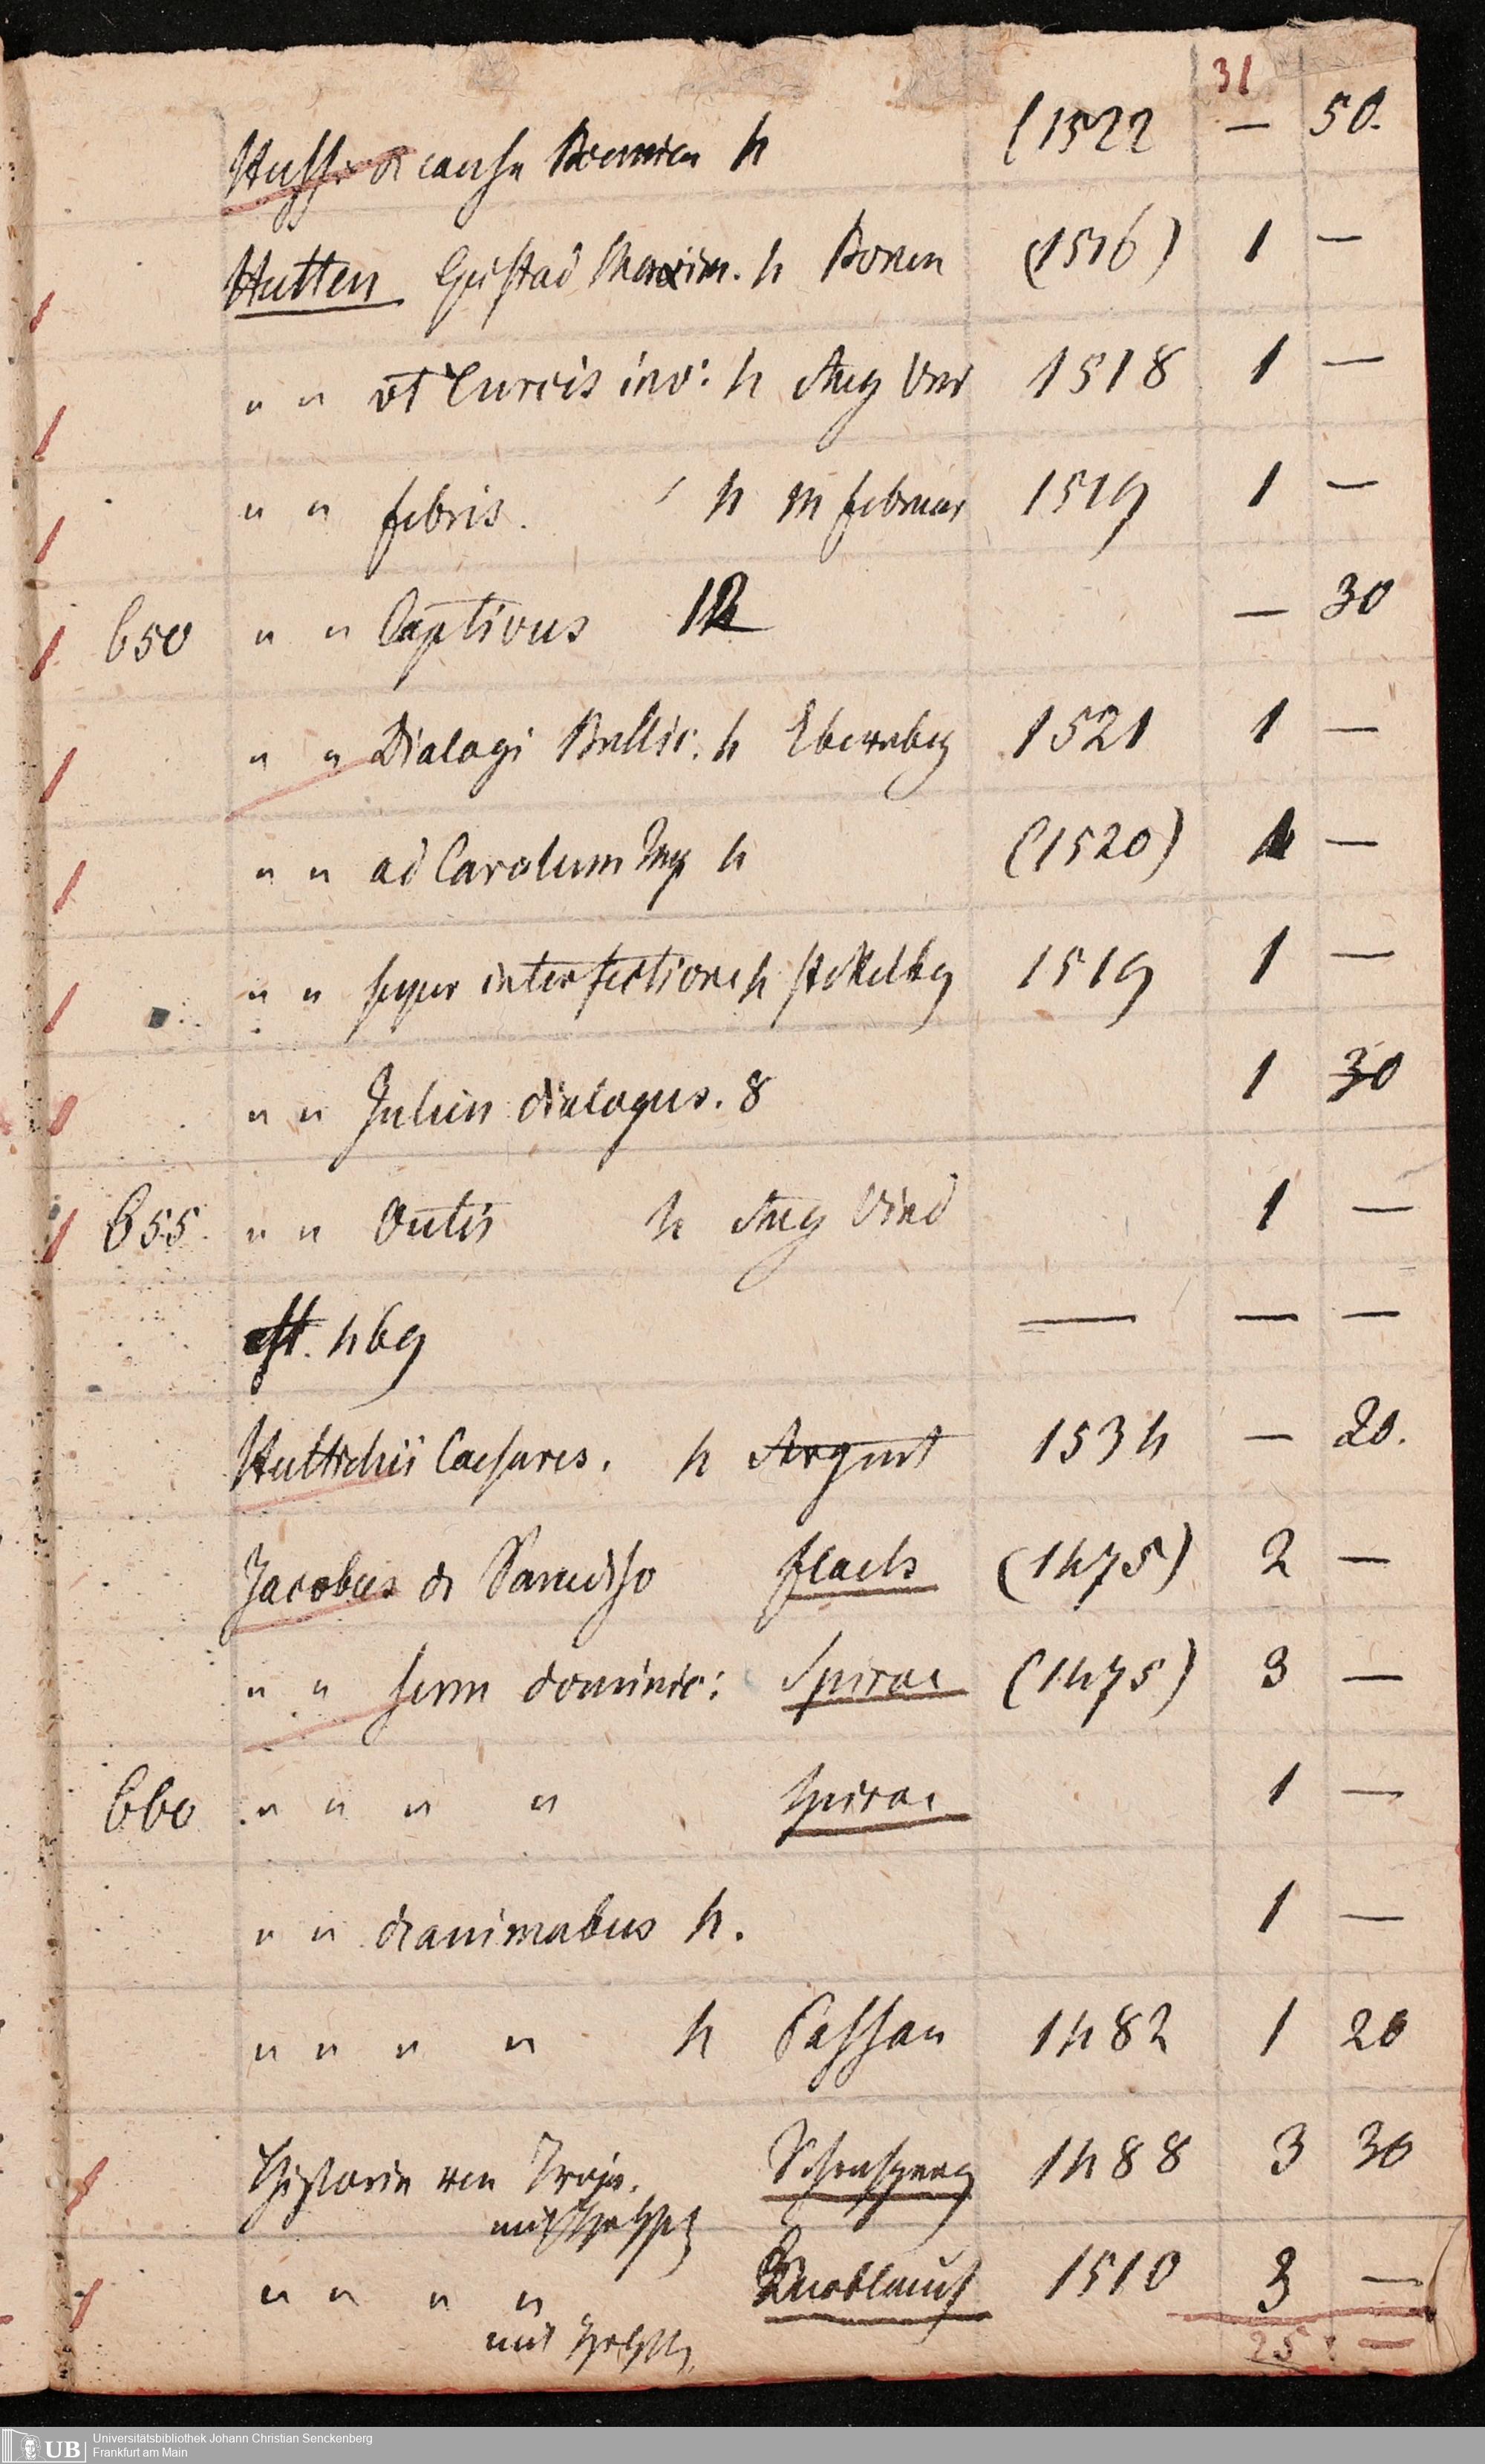 31
Huss. de causa Boemica 4 (1522 — 50.
Hutten Gestad Maxim. 4 Bonon (1516) 1 —
" " ut Turcis inv: 4 Aug Vind 1518 1 —
" " febris. 4 m februar 1519 1 —
650 " " Captivus 12 — 30
" " Dialogi 4 Ebernbg 1521 1 —
" " ad Carolum Imp 4 (1520) 1 —
" " super interfectione 4 Stekelbg 1519 1 —
" " Julius dialogus. 8 1 30
655. " " Outis 4 Aug Vind 1 —
est. 469 — — —
Huttichii Caesares. 4 Argent 1534 — 20.
Jacobus de Paradiso flach (1475) 2 —
" " serm dominic: Spirae (1475) 3 —
660 " " " " Spirae 1 —
" " de animabus 4. 1 —
" " " " 4 Passau 1482 1 20
Historia von Troja. Schonsperg 1488 3 30
mit Holzst
" " " " Knoblauch 1510 3 —
mit Holzst
25 : —
Universitätsbibliothek Johann Christian Senckenberg
Frankfurt am Main
UB